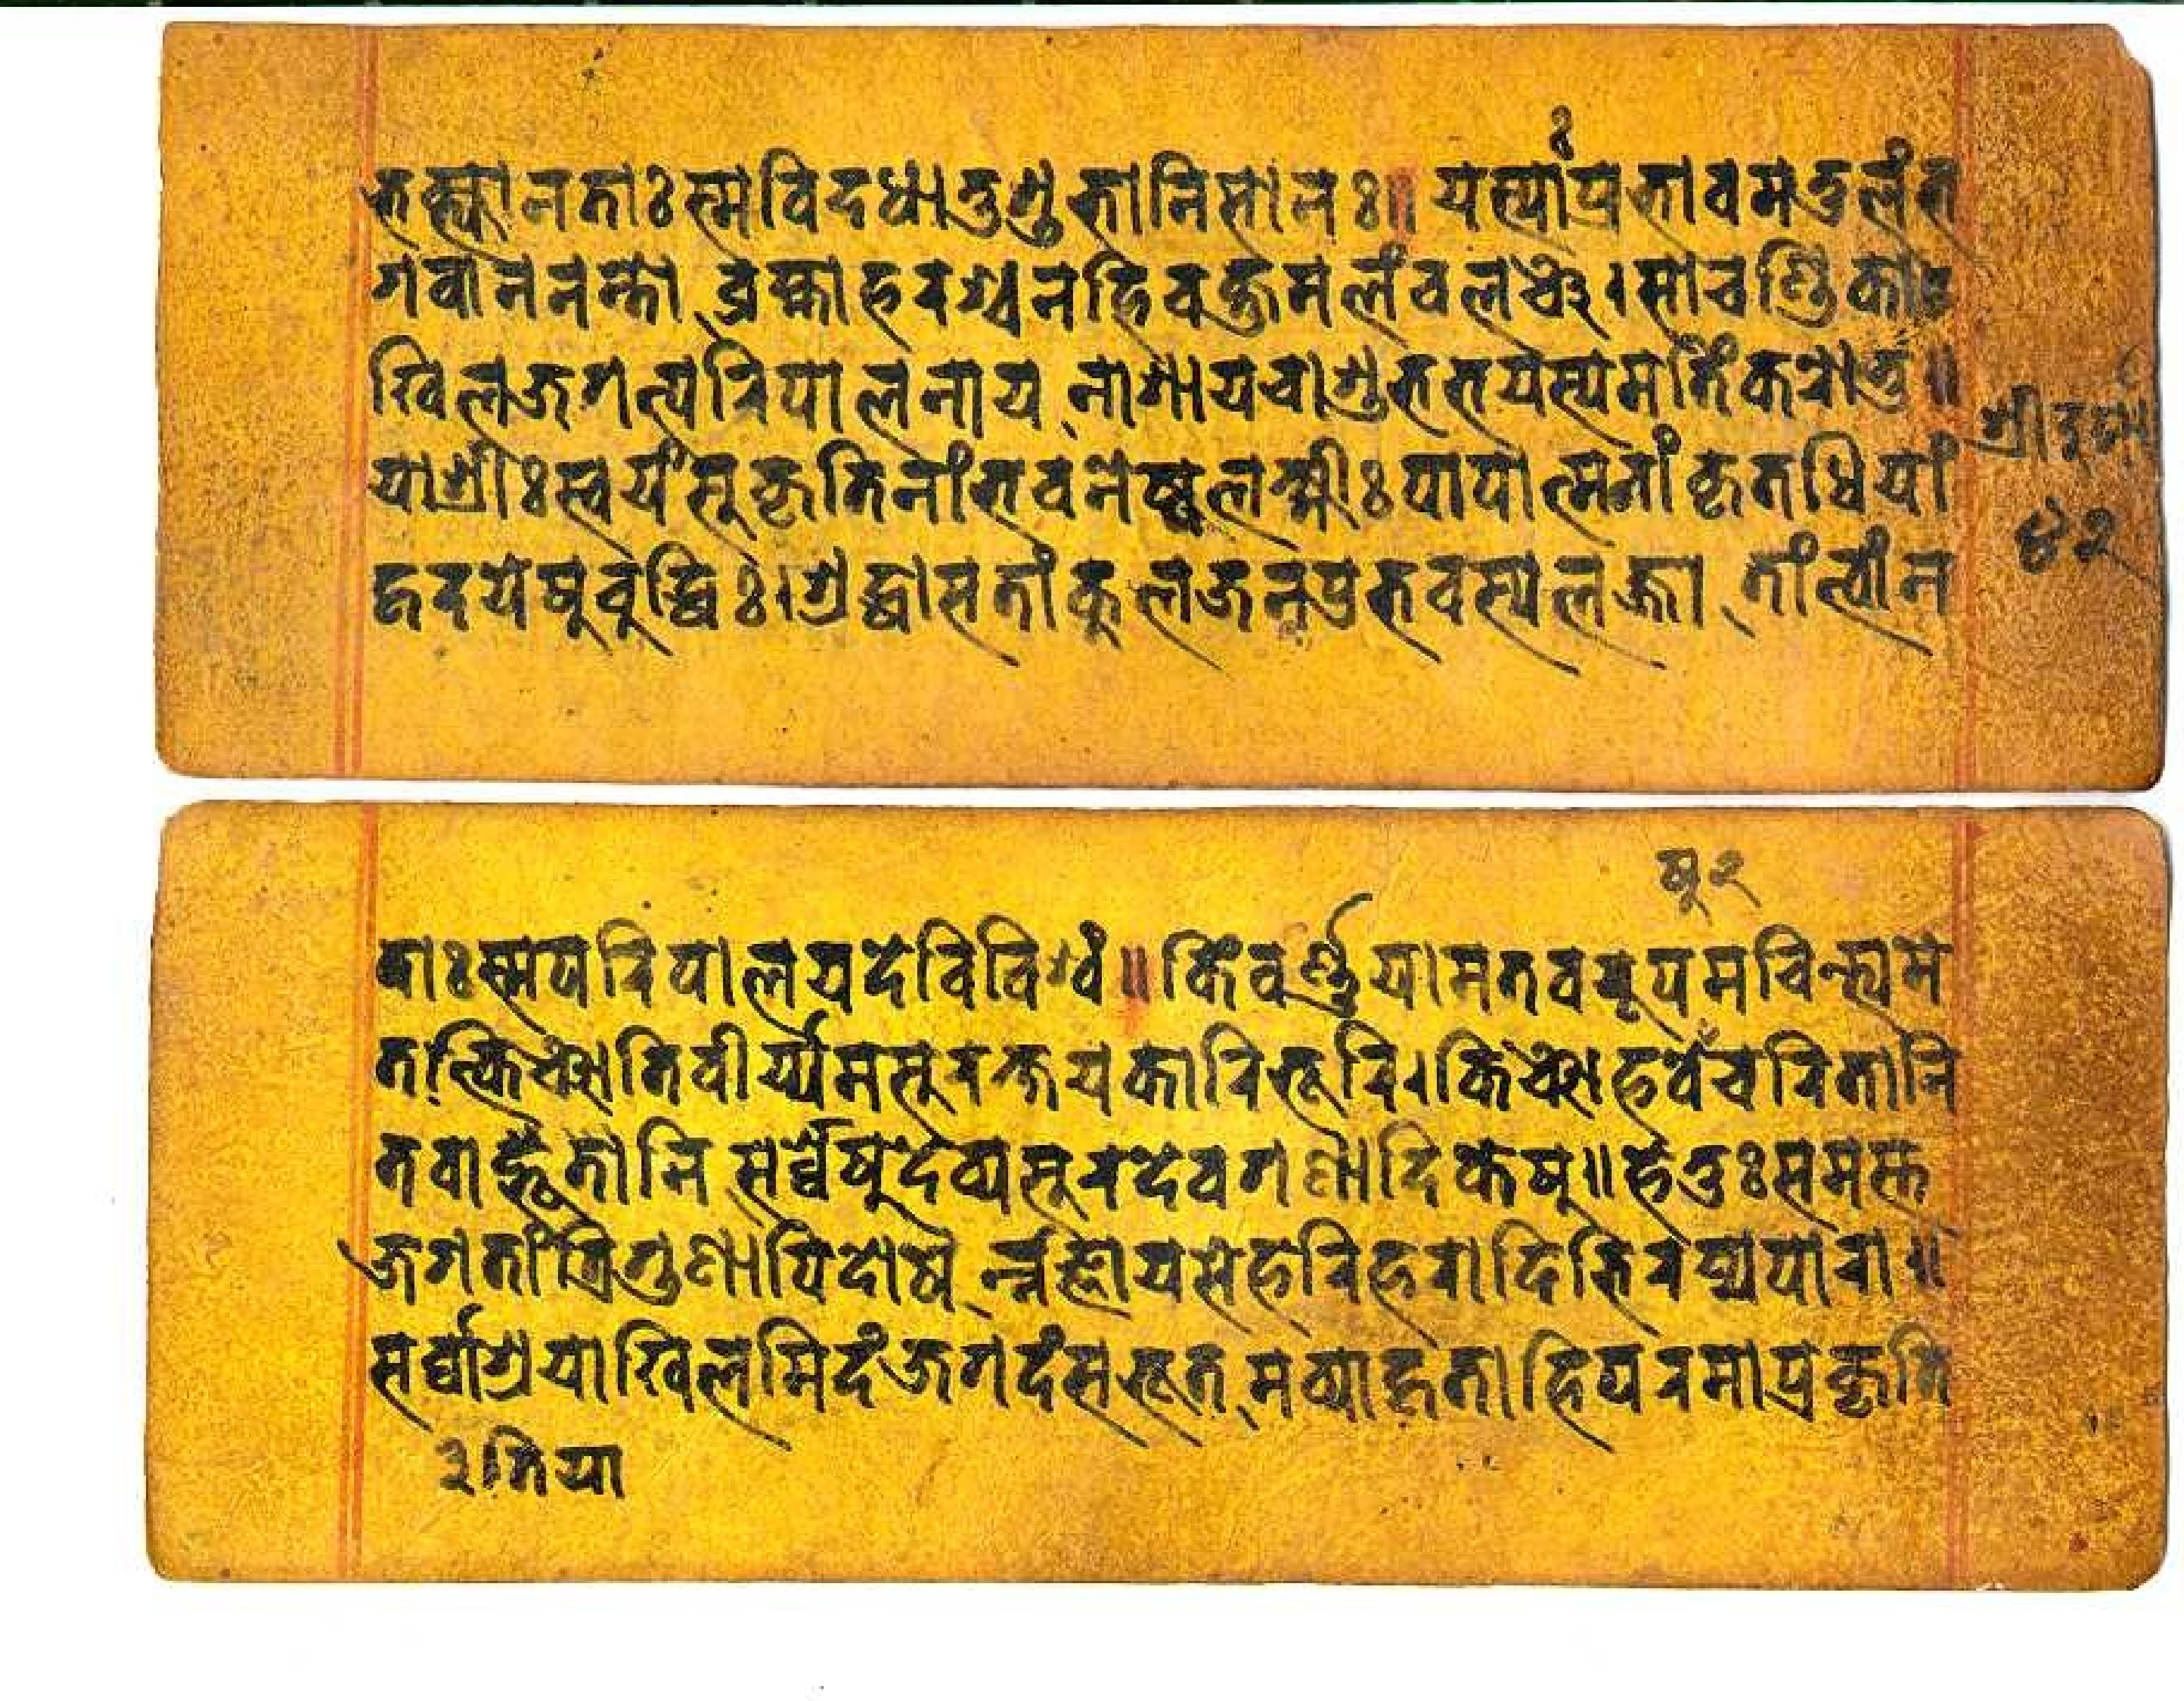 भक्त्यानताःस्मविदधातुशुभानिसानः॥ यस्याःप्रभावमतुलंभ
गवाननन्तो ब्रह्माहरश्चनहिवक्तुमलंवलञ्च।साचण्डिका
खिलजगत्परिपालनाय नाशायचाशुभभयस्यमतिंकरोतु॥
याश्रीःस्वयंसुकृतिनांभवनेष्वलक्ष्मीःपापात्मनांकृतधियां
हृदयेषुबुद्धिः।श्रद्धासतांकुलजनप्रभवस्यलज्जा तांत्वांन
४२
षु२
ताःस्मपरिपालयदेविविश्वं॥किंवर्ण्णयामतवरूपमचिन्त्यमे
तत्किञ्चातिवीर्य्यमसुरक्षयकारिभूरि।किञ्चाहवेचरितानि
तवाद्भुतानि सर्व्वेषुदेव्यसुरदेवगणादिकेषु॥हेतुःसमस्त
जगतांत्रिगुणापिदोषै र्न्नज्ञायसेहरिहरादिभिरप्यपारा॥
सर्व्वाश्रयाखिलमिदंजगदंसभूत मव्याकृताहिपरमाप्रकृति
३तिया